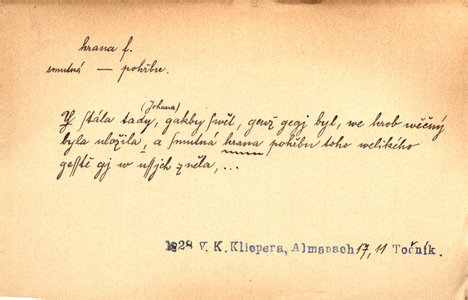 hrana f.
smutná — pohřbu.
(Johana)
Y stála tady, gakby swět, genž gegj byl, we hrob wěčný
byla uložila, a smutná hrana pohřbu toho welikého
gesstě gj w ussjch zněla, ...
1828 V. K. Klicpera, Almanach 17, 11 Točník.